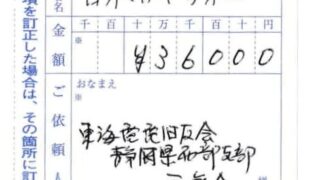 名
千百十万千百十円
金額
¥36000
項を訂正した場合は、その箇所に訂
おなまえ
ご依頼人
東海電電旧友会
静岡県西部支部